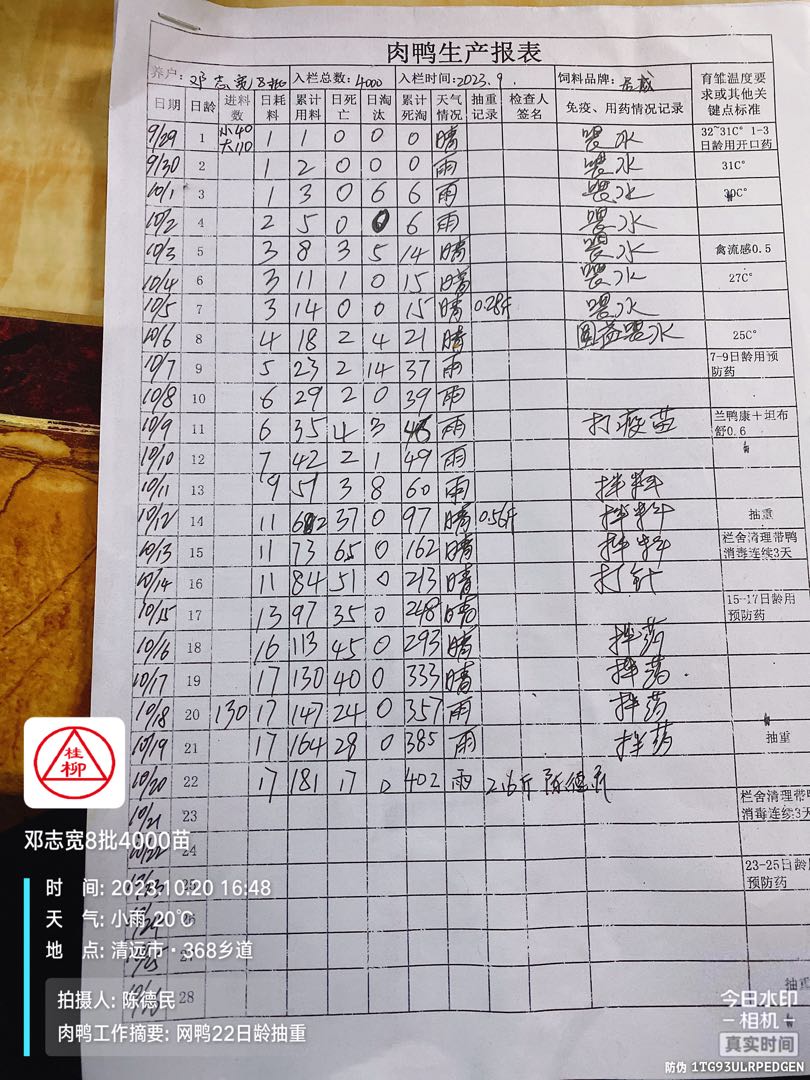 肉鸭生产报表
养户: 邓志宽8批 入栏总数: 4000 入栏时间: 2023.9. 饲料品牌:
日期 日龄 进料数 日耗料 累计用料 日死亡 日淘汰 累计死淘 天气情况 抽重记录 检查人签名 免疫、用药情况记录 育雏温度要求或其他关键点标准
9/29 1 小40 大110 1 1 0 0 0 晴 喂水 32~31C° 1-3日龄用开口药
9/30 2 1 2 0 0 0 雨 喂水 31C°
10/1 3 1 3 0 6 6 雨 喂水 30C°
10/2 4 2 5 0 0 6 雨 喂水
10/3 5 3 8 3 5 14 晴 喂水 禽流感0.5
10/4 6 3 11 1 0 15 晴 喂水 27C°
10/5 7 3 14 0 0 15 晴 0.28斤 喂水
10/6 8 4 18 2 4 21 晴 喂水 25C°
10/7 9 5 23 2 14 37 雨 7-9日龄用预防药
10/8 10 6 29 2 0 39 雨
10/9 11 6 35 4 3 46 雨 打疫苗 兰鸭康+坦布舒0.6
10/10 12 7 42 2 1 49 雨
10/11 13 9 51 3 8 60 雨 拌料
10/12 14 11 62 37 0 97 晴 0.56斤 拌料 抽重
10/13 15 11 73 65 0 162 晴 拌料 栏舍清理带鸭消毒连续3天
10/14 16 11 84 51 0 213 晴 打针
10/15 17 13 97 35 0 248 晴 15-17日龄用预防药
10/16 18 16 113 45 0 293 晴 拌药
10/17 19 17 130 40 0 333 晴 拌药
10/18 20 130 17 147 24 0 357 雨 拌药
10/19 21 17 164 28 0 385 雨 拌药 抽重
10/20 22 17 181 17 0 402 雨 2.16斤 陈德民
10/21 23 栏舍清理带鸭消毒连续3天
10/22 24
25 23-25日龄用预防药
26
27
28 抽重
桂柳
邓志宽8批4000苗
时 间: 2023.10.20 16:48
天 气: 小雨 20℃
地 点: 清远市·368乡道
拍摄人: 陈德民
肉鸭工作摘要: 网鸭22日龄抽重
今日水印
相机
真实时间
防伪 1TG93ULRPEDGEN